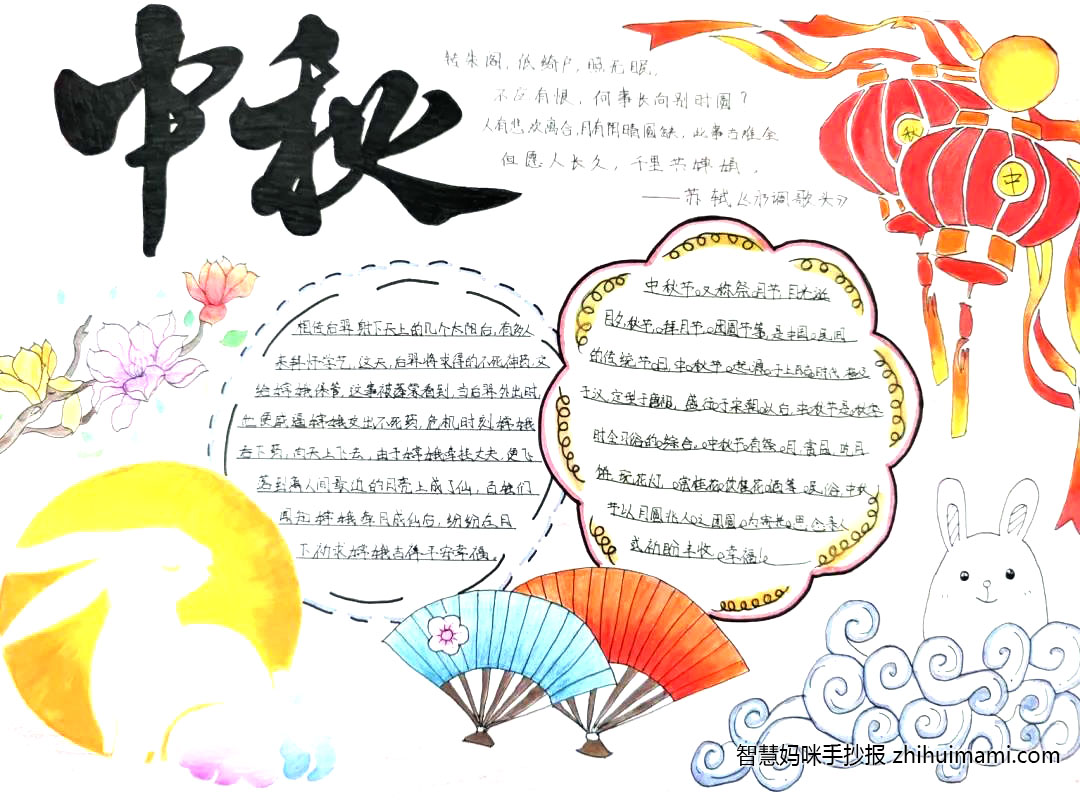 中秋
转朱阁,低绮户,照无眠。
不应有恨,何事长向别时圆?
人有悲欢离合,月有阴晴圆缺,此事古难全
但愿人长久,千里共婵娟。
——苏轼《水调歌头》
秋
中
相传后羿射下天上的几个太阳后,有多人
来拜师学艺,这天,后羿将求得的不死神药交
给嫦娥保管,这事被蓬蒙看到,当后羿外出时,
他便威逼嫦娥交出不死药,危机时刻,嫦娥
吞下药,向天上飞去,由于嫦娥牵挂丈夫,便飞
落到离人间最近的月亮上成了仙,百姓们
闻知嫦娥奔月成仙后,纷纷在月
下祈求嫦娥吉祥平安幸福。
中秋节,又称祭月节、月光诞
月夕、秋节、拜月节、团圆节等,是中国民间
的传统节日,中秋节起源于上古时代,普及
于汉,定型于唐朝,盛行于宋朝以后,中秋节是秋季
时令习俗的综合,中秋节有祭月、赏月、吃月
饼、玩花灯、赏桂花、饮桂花酒等民俗,中秋
节以月圆兆人之团圆,为寄托思念亲人
或祈盼丰收、幸福!
智慧妈咪手抄报 zhihuimami.com